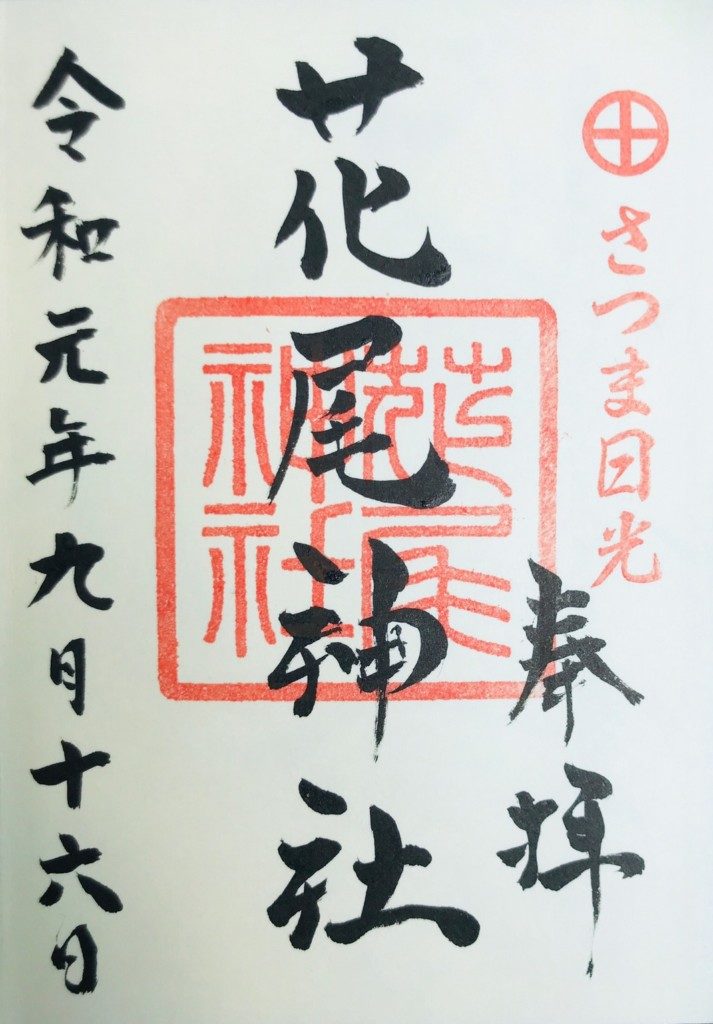 さつま日光
奉拝
花尾神社
花尾神社
令和元年九月十六日